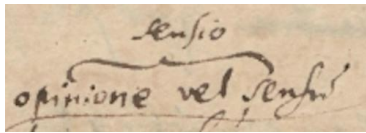 sensio
opinione vel sensu